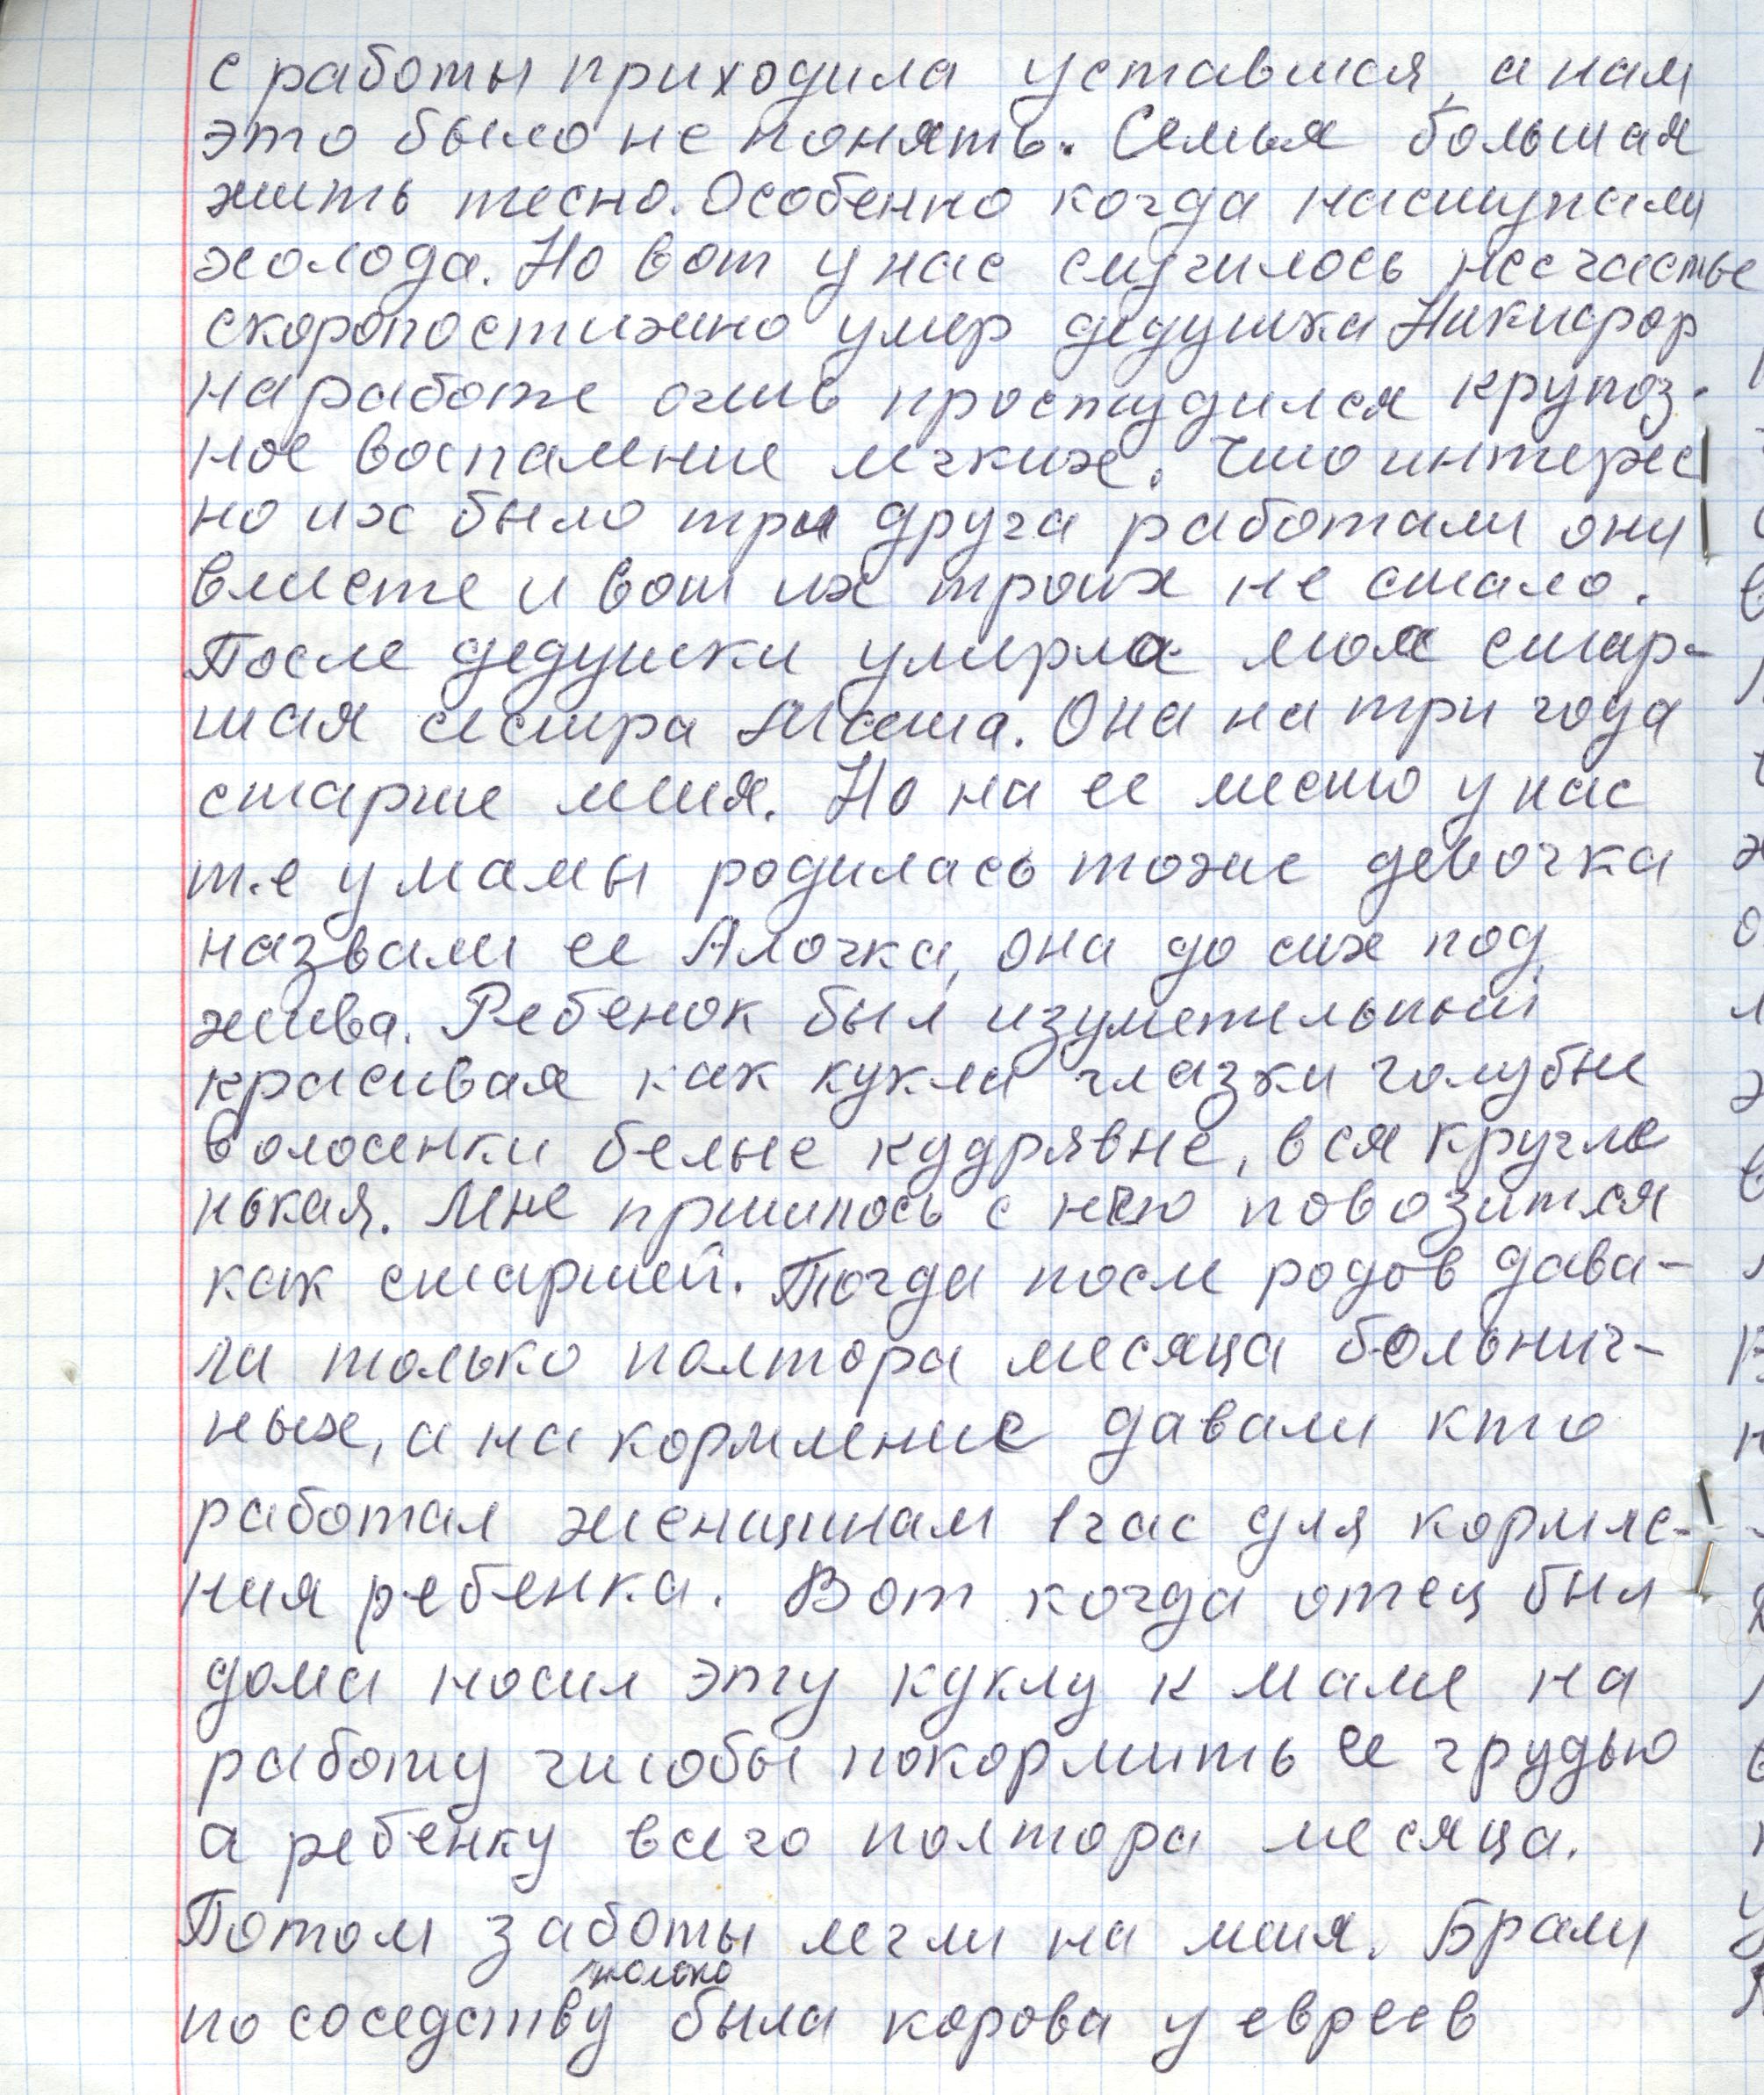 с работы приходила уставшая, а нам
это было не понять. Семья большая
жить тесно. Особенно когда наступали
холода. Но вот у нас случилось несчастье
скоропостижно умер дедушка Никифор
на работе очень простудился крупоз-
ное воспаление легких. Что интерес
но их было три друга работали они
вместе и вот их троих не стало.
После дедушки умерла моя стар-
шая сестра Маша. Она на три года
старше меня. Но на ее место у нас
т.е у мамы родилась тоже девочка
назвали ее Алочка, она до сих под
жива. Ребенок был изумительный
красивая как кукла глазки голубые
волосенки белые кудрявые, вся кругле
нькая. Мне пришлось с нею повозится
как старшей. Тогда после родов дава-
ли только полтора месяца больнич-
ных, а на кормление давали кто
работал женщинам 1 час для кормле-
ния ребенка. Вот когда отец был
дома носил эту куклу к маме на
работу чтобы покормить ее грудью
а ребенку всего полтора месяца.
Потом заботы легли на меня. Брали
только
по соседству была корова у евреев